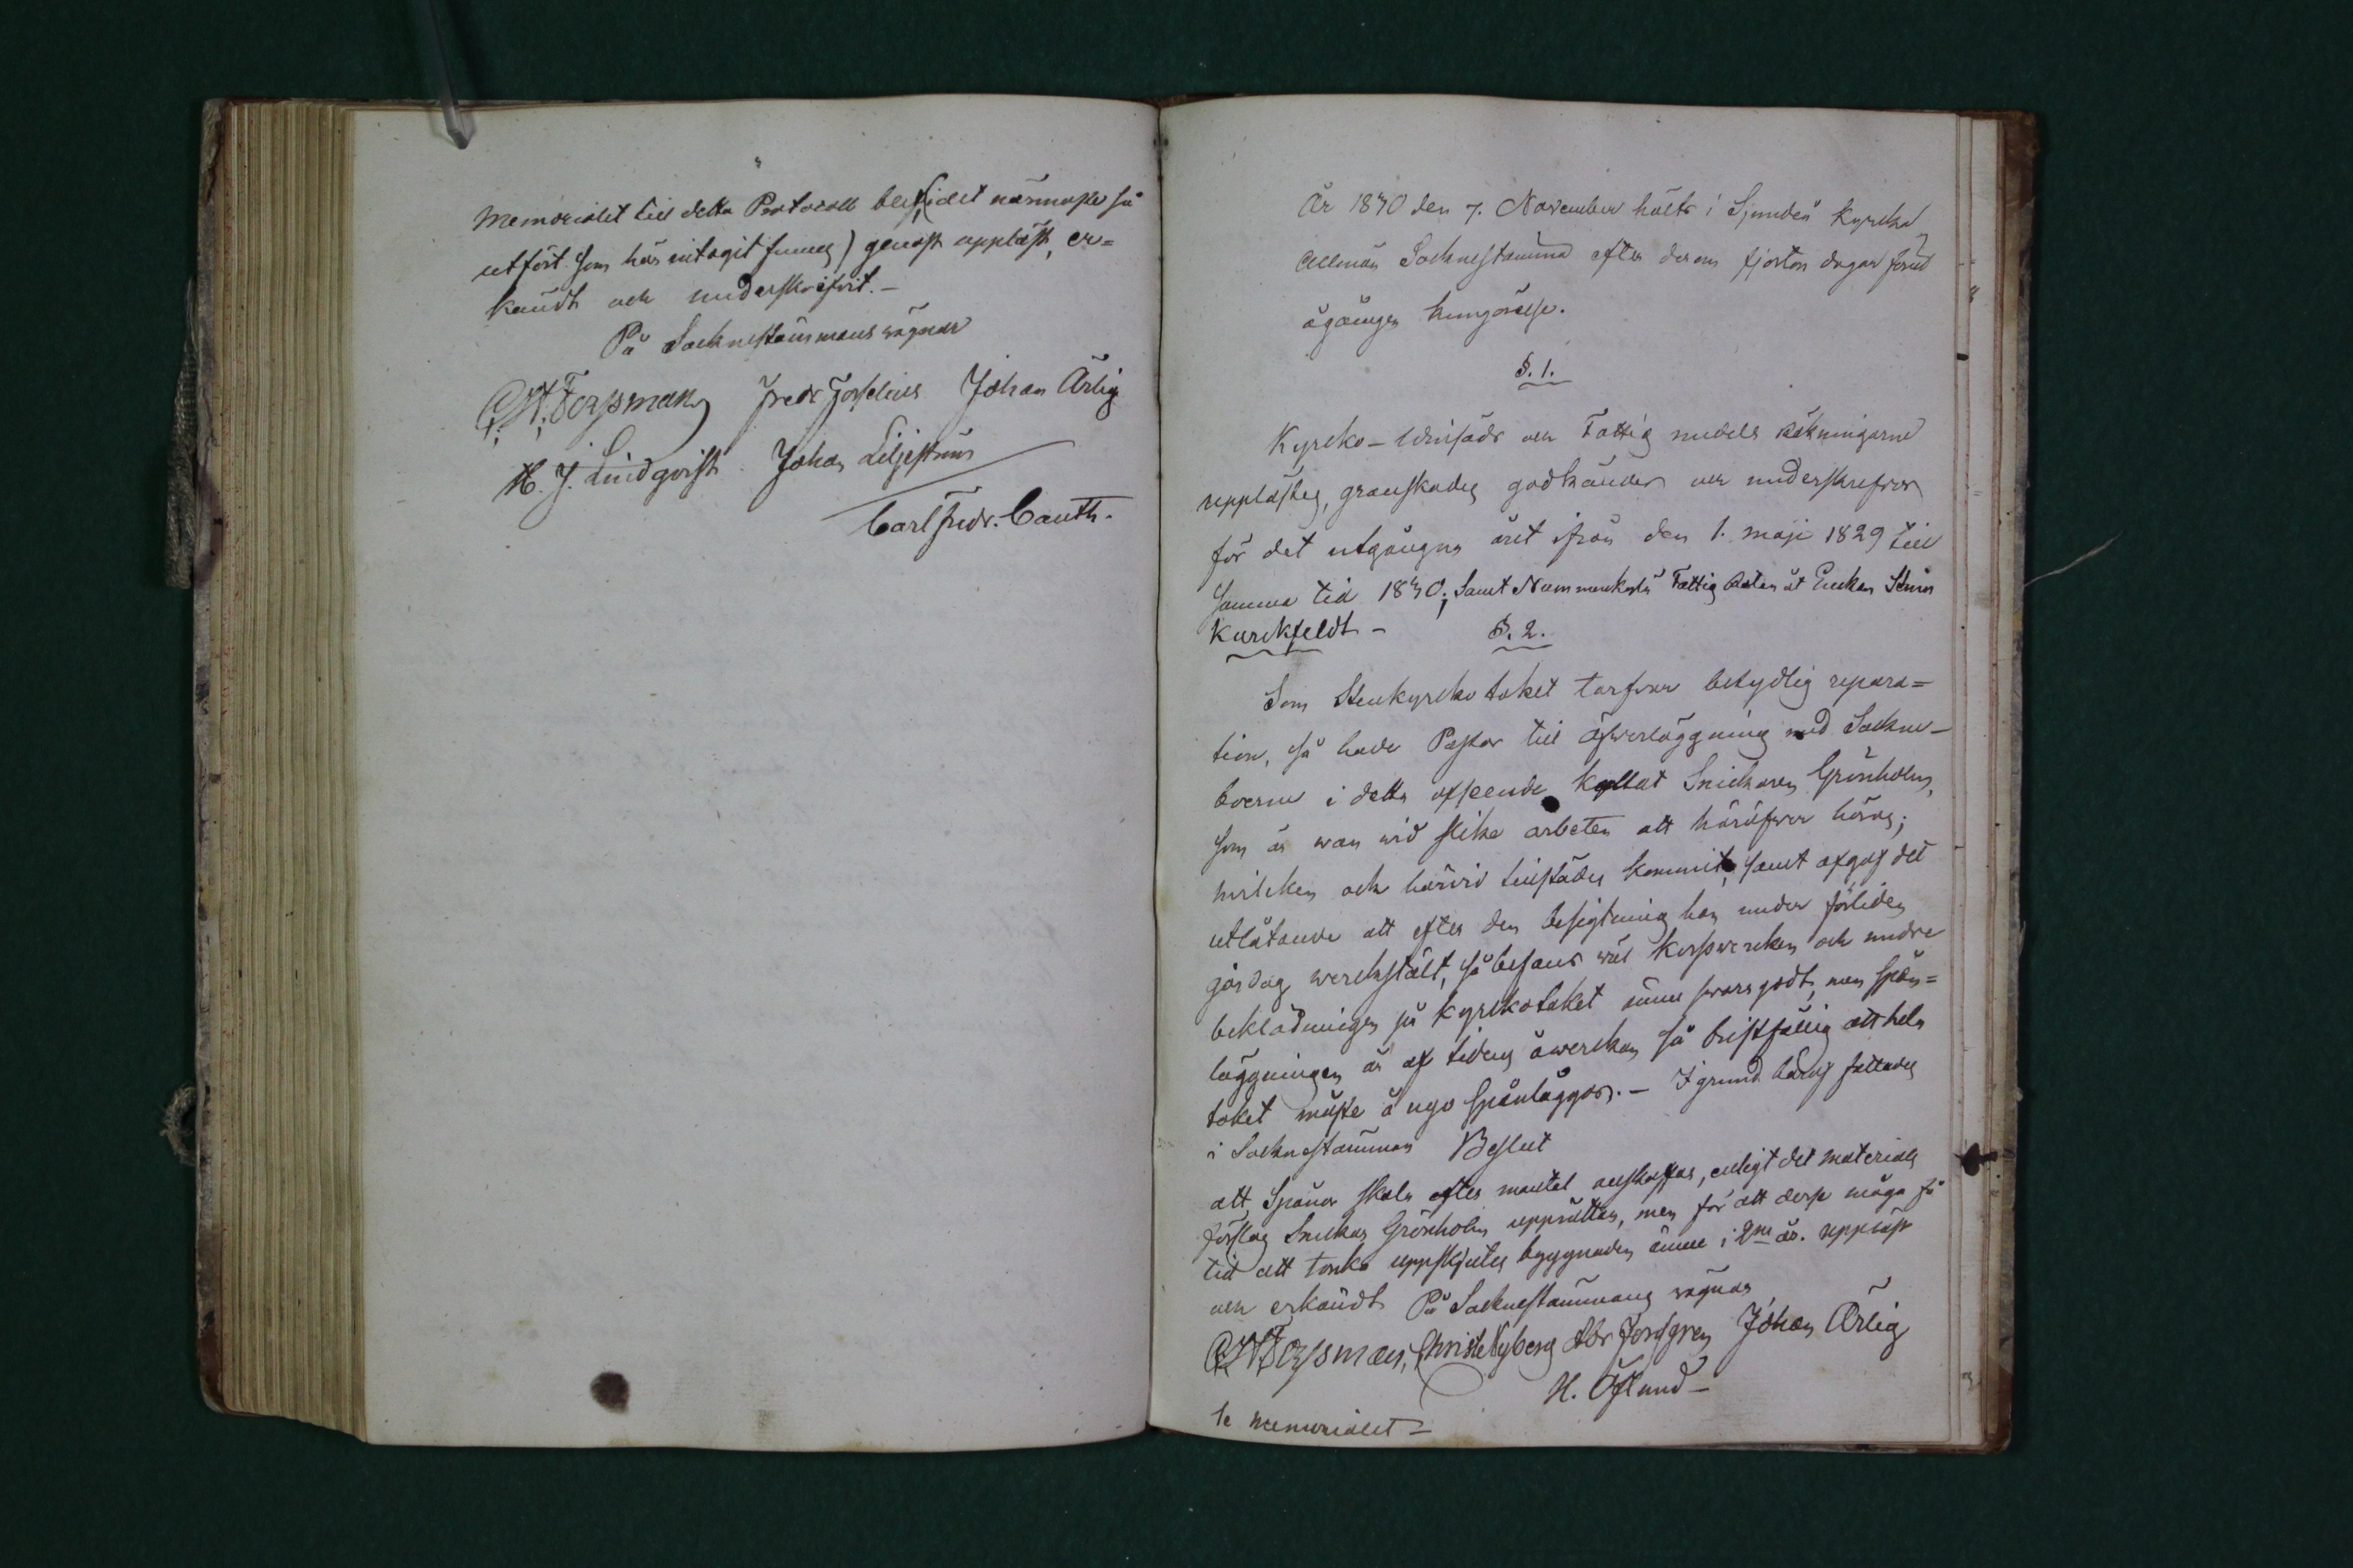 Memorialet till detta Protocoll blef (det närmaste så
utfört som här intagit finnes) genast uppläst, er=
kändt och underskrifvit.—
På Sockneståmmans vägnar
C.H. Forssman Fredr Forselius Johan Ärlig
H. J. Lindqvist Johan Liljeström
Carl Fredr. Cauth.
År 1830 den 7. November hölts i Sjundeå Kyrcka
Allmän Socknestämma efter derom fjorton dagar förut
ågången kungörelse.
§. 1.
Kyrcko- och Fattig medels Räkningarne
upplästes, granskades godkändes och underskrefvos
för det utgångna året ifrån den 1. Maji 1829 till
samma tid 1830; samt Fattig åt Enkan
§. 2.
Som Stenkyrcko taket tarfvar betydlig repara=
tion, så hade Pastor till öfverläggning med Sockne-
boerne i detta afseende kallat Snickaren Grönholm,
som är van vid slika arbeten att häröfver höras;
hvilken och härvid tillstädes kommit, samt afgaf det
utlåtande att efter den besigtning han under förliden
gårdag verckstält, så befans väl korsvercken och undre
beklädningen på kyrkotaket ännu svara godt, men spån=
läggningen är af tidens åverckan så bristfällig att hela
taket måste å nyo spånläggas.— I grund häraf fattades
i Socknestämman Beslut
att Spånor skola efter mantal anskaffas, enligt det materials
förslag Snickar Grönholm upprättar, men för att desse måga få
tid att torka uppskjutes byggnaden ännu i 2ne år. Uppläst
och erkändt På Socknestämmans vägnar
C.H. Forssman, Christ Nyberg Abr Forsgren Johan Ärlig
H. Öhlund—
se Memorialet—